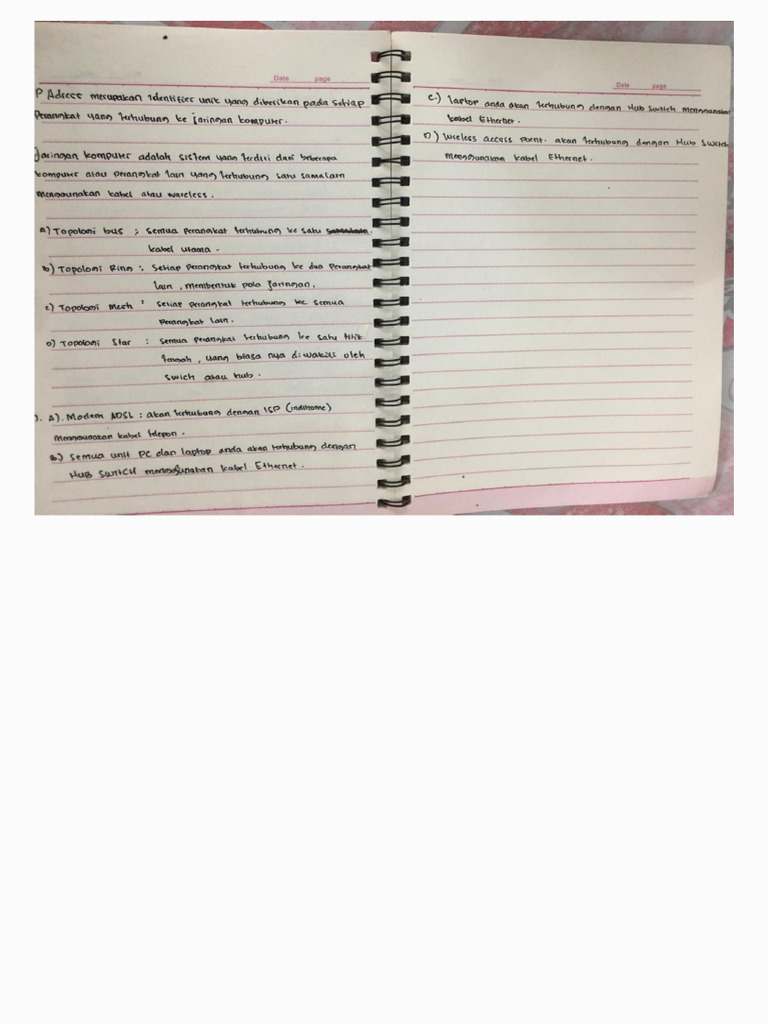 Date page
P Adress merupakan Identifier unik yang diberikan pada setiap
Perangkat yang terhubung ke jaringan komputer.
Jaringan komputer adalah sistem yang terdiri dari beberapa
komputer atau perangkat lain yang terhubung satu sama lain
menggunakan kabel atau wareless.
A) Topologi bus ; semua perangkat terhubung ke satu
kabel utama.
b) Topologi Ring : Setiap perangkat terhubung ke dua perangkat
lain, membentuk pola jaringan.
c) Topologi Mesh : setiap perangkat terhubung ke semua
perangkat lain.
D) Topologi Star : semua perangkat terhubung ke satu titik
tengah, yang biasa nya diwakili oleh
swich atau hub.
). A). Modem ADSL : akan terhubung dengan ISP (indihome)
menggunakan kabel telepon.
B.) semua unit PC dan laptop anda akan terhubung dengan
HUB SWITCH menggunakan kabel Ethernet.
Date page
c.) laptop anda akan terhubung dengan Hub Switch menggunakan
kabel Ethernet.
D) Wireless access point. akan terhubung dengan Hub Switch
menggunakan kabel Ethernet.